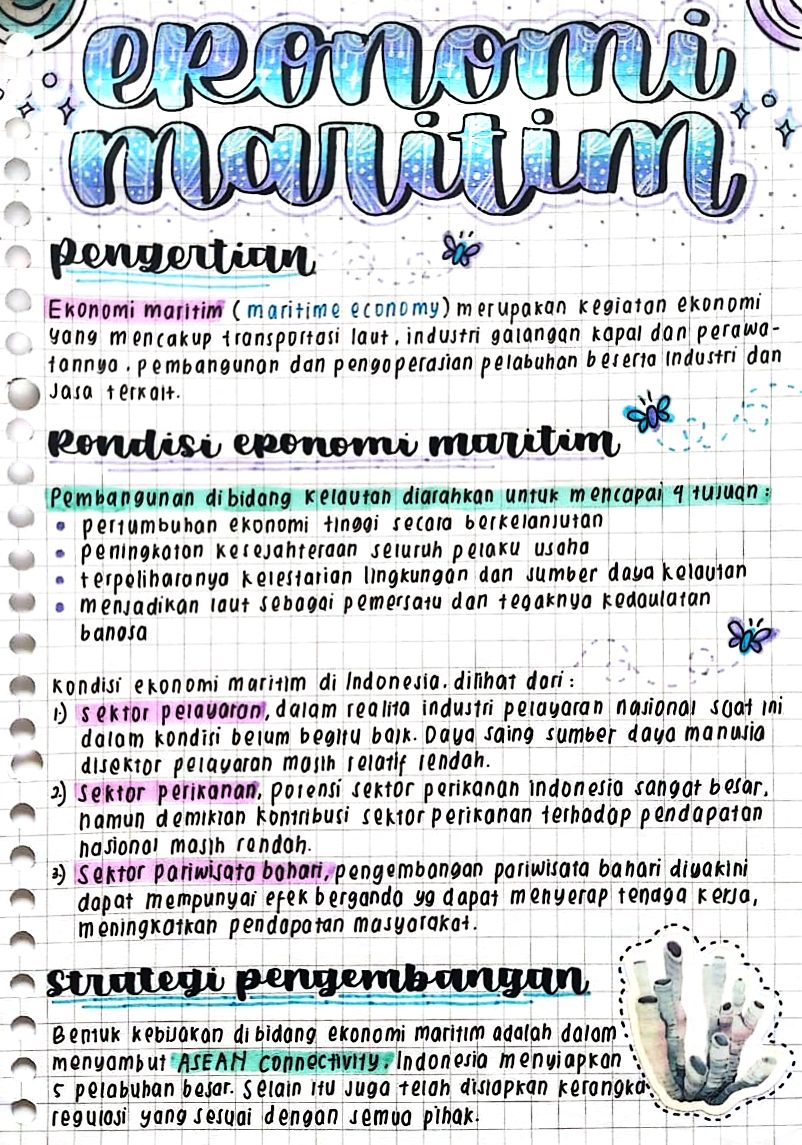 ekonomi
maritim
pengertian
Ekonomi maritim (maritime economy) merupakan kegiatan ekonomi
yang mencakup transportasi laut, industri galangan kapal dan perawa-
tannya, pembangunan dan pengoperasian pelabuhan beserta industri dan
Jasa terkait.
kondisi ekonomi maritim
Pembangunan di bidang kelautan diarahkan untuk mencapai 4 tujuan :
• pertumbuhan ekonomi tinggi secara berkelanjutan
• peningkatan kesejahteraan seluruh pelaku usaha
• terpeliharanya kelestarian lingkungan dan sumber daya kelautan
• menjadikan laut sebagai pemersatu dan tegaknya kedaulatan
bangsa
Kondisi ekonomi maritim di Indonesia, dilihat dari :
1) sektor pelayaran, dalam realita industri pelayaran nasional saat ini
dalam kondisi belum begitu baik. Daya saing sumber daya manusia
disektor pelayaran masih relatif rendah.
2) Sektor perikanan, potensi sektor perikanan indonesia sangat besar,
namun demikian kontribusi sektor perikanan terhadap pendapatan
nasional masih rendah.
3) Sektor pariwisata bahari, pengembangan pariwisata bahari diyakini
dapat mempunyai efek berganda yg dapat menyerap tenaga kerja,
meningkatkan pendapatan masyarakat.
strategi pengembangan
Bentuk kebijakan di bidang ekonomi maritim adalah dalam
menyambut ASEAN Connectivity, Indonesia menyiapkan
5 pelabuhan besar. Selain itu juga telah disiapkan kerangka
regulasi yang sesuai dengan semua pihak.